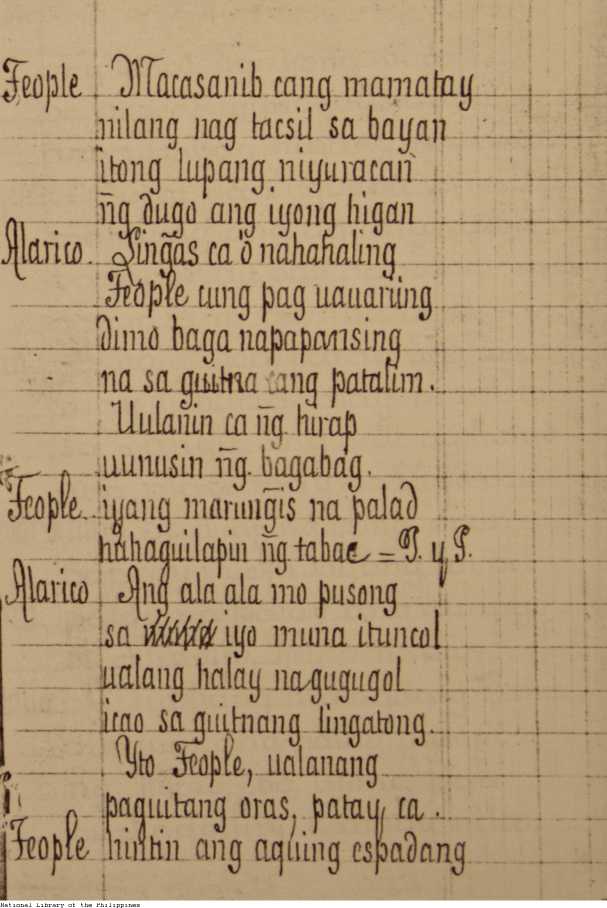 Feople Macasanib cang mamatay
nilang nag tacsil sa bayan
itong lupang niyuracan
ñg dugo ang iyong higan
Alarico. Lingãs ca'o nahahaling
Feople cung pag uauariing
dimo baga napapansing
na sa guitna cang patalim.
Uulanin ca ñg hirap
uunusin ñg bagabag.
Feople iyang marungis na palad
hahaguilapin ñg tabac = P. y P.
Alarico Ang ala ala mo pusong
sa iyo muna ituncol
ualang halay nagugugol
icao sa guitnang lingatong.
Yto Feople, ualanang
paquitang oras, patay ca.
Feople hintin ang aquing espadang
National Library of the Philippines